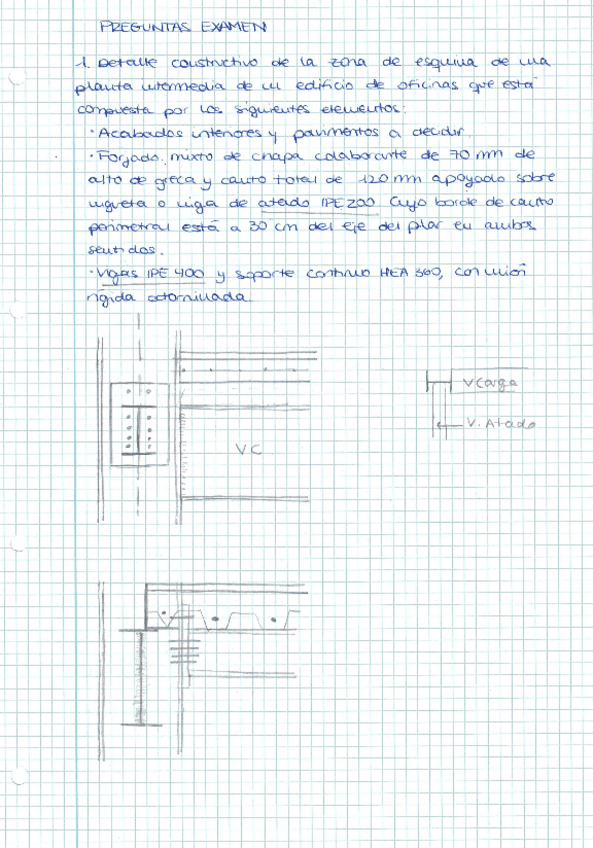 PREGUNTAS EXAMEN
1. Detalle constructivo de la zona de esquina de una
planta intermedia de un edificio de oficinas que está
compuesta por los siguientes elementos:
· Acabados interiores y pavimentos a decidir.
· Forjado mixto de chapa colaborante de 70 mm de
alto de greca y canto total de 120 mm apoyado sobre
vigueta o viga de atado IPE200. Cuyo borde de canto
perimetral está a 30 cm del eje del pilar en ambos
sentidos.
· Vigas IPE 400 y soporte continuo HEA 360, con unión
rígida atornillada.
V Carga
V. Atado
VC